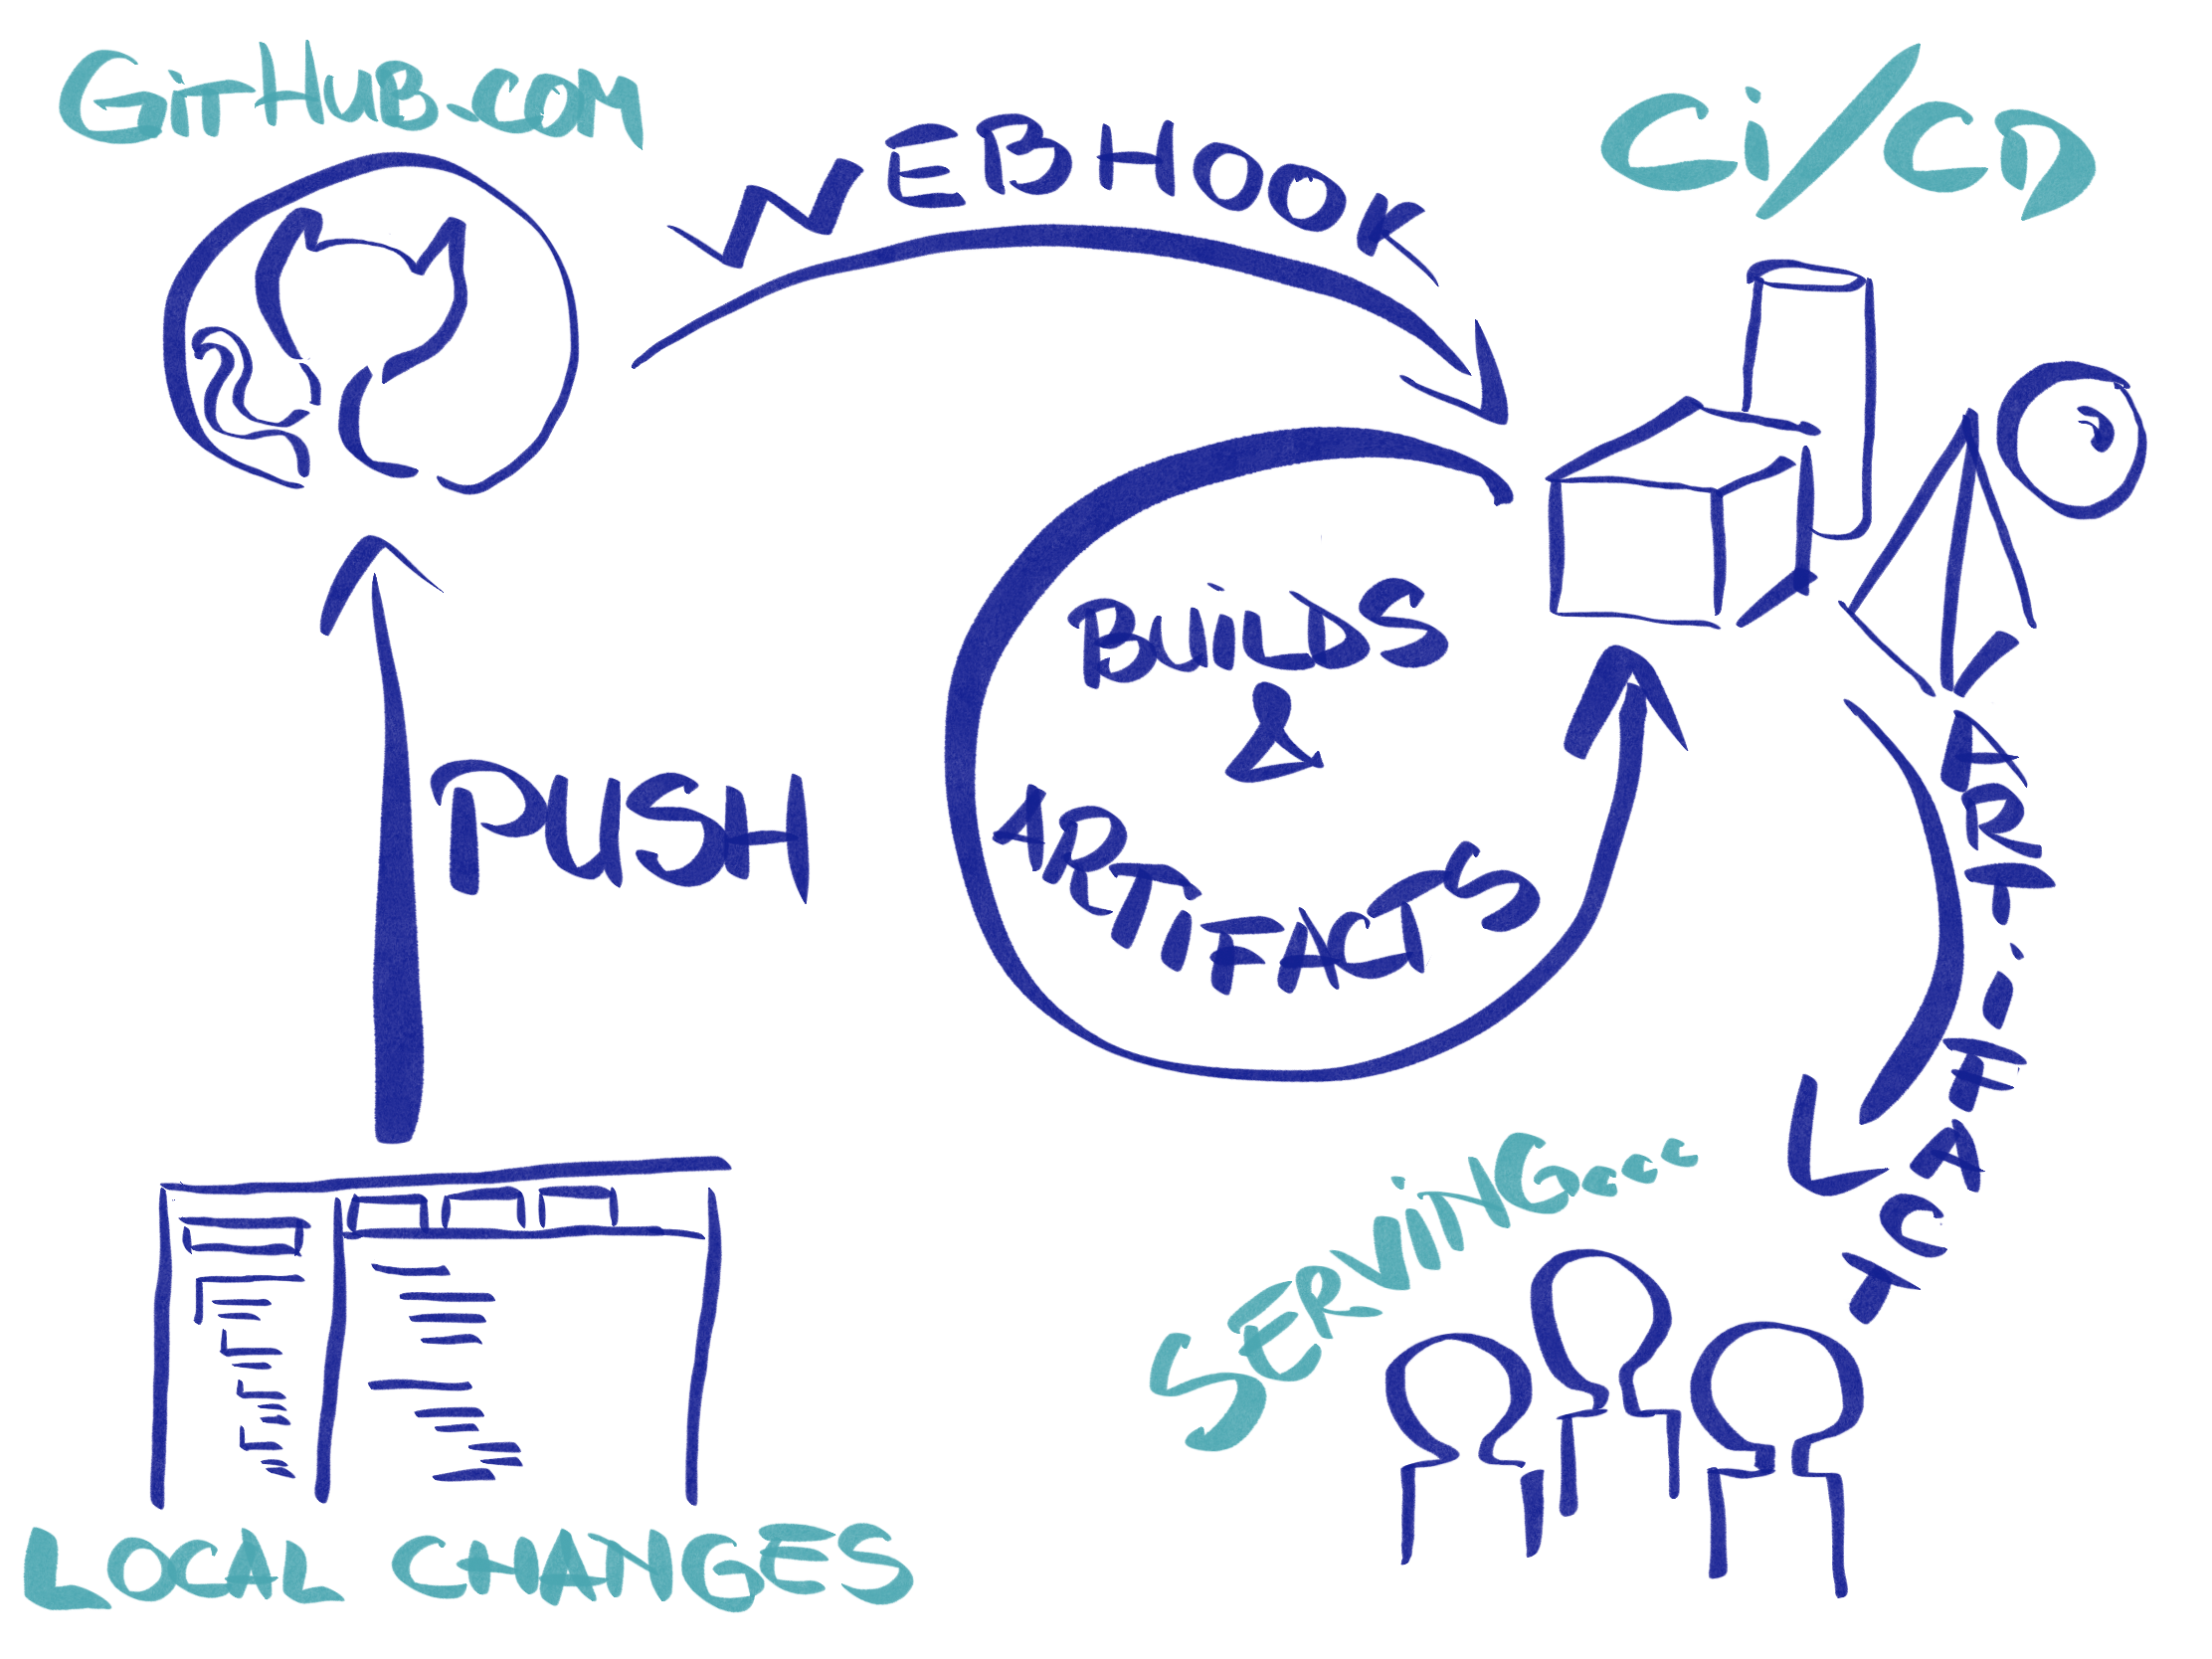 GitHub.com
WEBHOOK
Ci/CD
BUiLDS
&
ARTiFACTS
PUSH
ARTiFACT
SERViNG...
LOCAL CHANGES